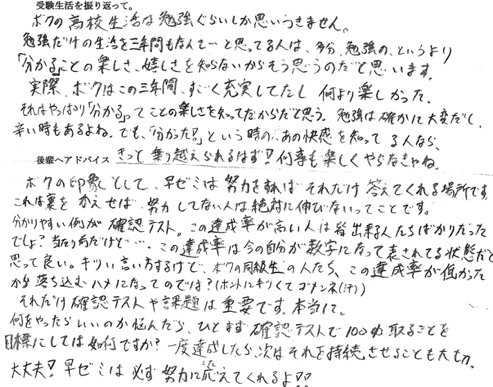 受験生活を振り返って。
ボクの高校生活は勉強ぐらいしか思いつきません。
勉強だけの生活を三年間もなんてーと思ってる人は、多分、勉強の、というより
「分かることの楽しさ、嬉しさを知らないからそう思うのだと思います。
実際、ボクはこの三年間、すごく充実してたし 何より楽しかった。
それはやっぱり「分かる」ってことの楽しさを知ってたからだと思う。勉強は確かに大変だし、
辛い時もあるよね。でも、「分かった!」という時の、あの快感を知ってる人なら、
きっと乗り越えられるはず!何事も楽しくやらなきゃね。
後輩へアドバイス
ボクの印象として、早ゼミは努力をすればそれだけ答えてくれる場所です。
これは裏をかえせば、努力してない人は絶対に伸びないってことです。
分かりやすい例が確認テスト。この達成率が高い人は皆出来る人たちばかりだった
でしょ?当たり前だけど…。この達成率は今の自分が数字になって表されてる状態だと
思って良い。キツい言い方するけど、ボクの同級生の人たち、この達成率が低かった
から落ち込むハメになったのでは?(ホントにキツくてゴメンネ(汗))
それだけ確認テストや課題は重要です。本当に。
何をやったらいいのか悩んだら、ひとまず確認テストで100%取ることを
目標にしては如何ですか?一度達成したら、次はそれを持続させることも大切。
大丈夫!早ゼミは必ず努力に応えてくれるよ!!